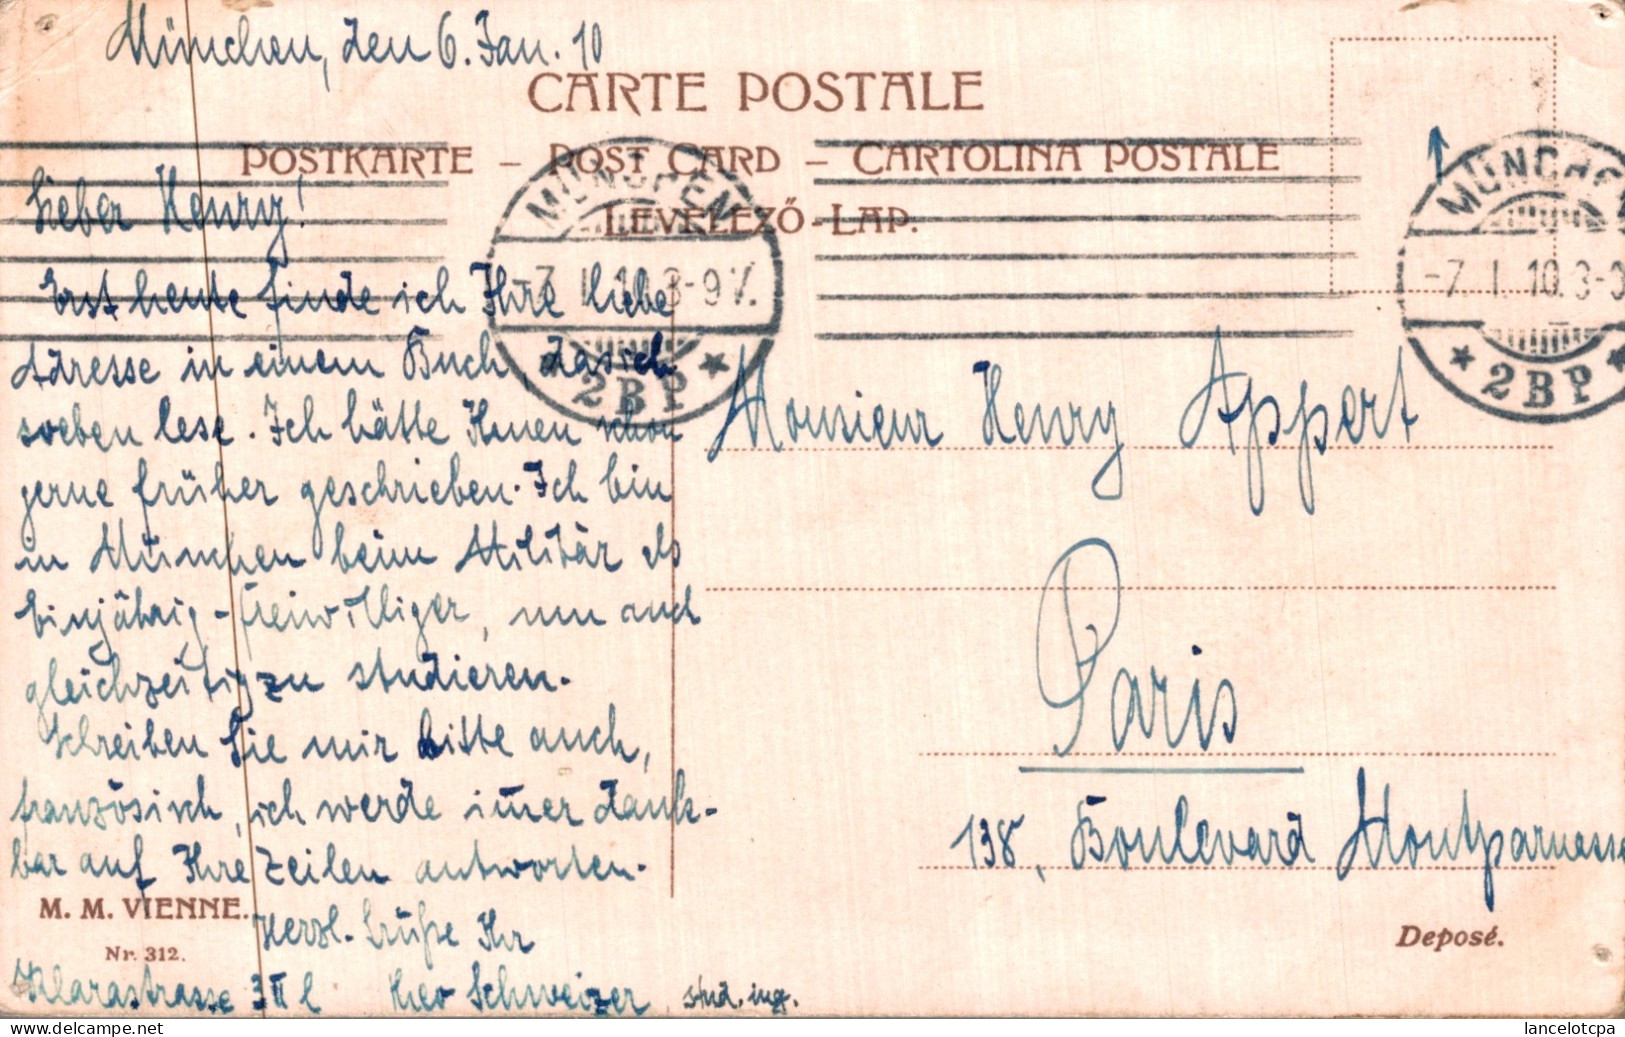 München, den 6. Jan. 10
CARTE POSTALE
POSTKARTE – POST CARD – CARTOLINA POSTALE
LEVELEZŐ-LAP.
MÜNCHEN
7. I. 10. 8-9 V.
2 B P
MÜNCHEN
-7. I. 10. 8-9
2 B P
Lieber Henry!
Erst heute finde ich Ihre liebe
Adresse in einem Buch, das ich
soeben lese. Ich hätte Ihnen schon
gerne früher geschrieben. Ich bin
in München beim Militär als
Einjährig-Freiwilliger, um auch
gleichzeitig zu studieren.
Schreiben Sie mir bitte auch,
französisch, ich werde im̄er dank-
bar auf Ihre Zeilen antworten.
Herzl. Grüße Ihr
Theo Schweizer, stud. ing.
Klarastrasse 3 II l
Monsieur Henry Appert
Paris
138, Boulevard Montparnasse
M. M. VIENNE.
Nr. 312.
Deposé.
delcampe.net
lancelotcpa